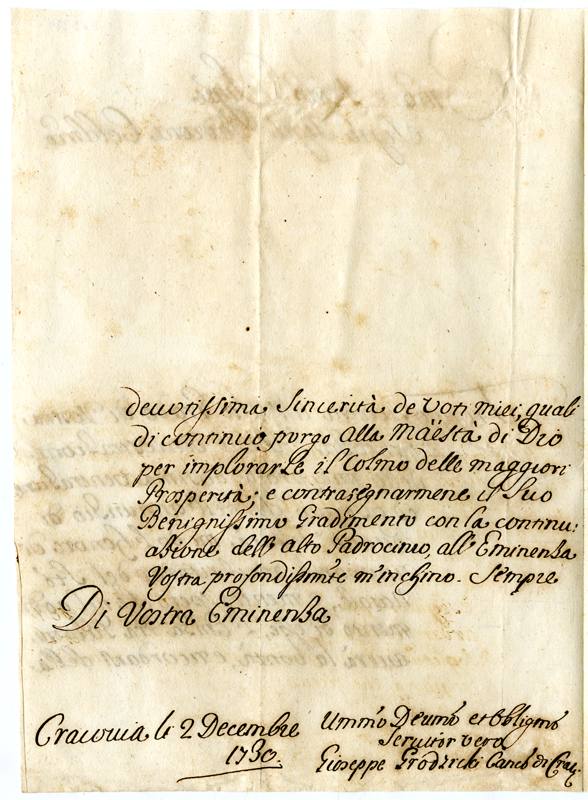 deuotissima Sincerità de Voti miei, quali
di continuo porgo alla Mäestà di Dio
per implorarLe il Colmo delle maggiori
Prosperità; e contrasegnarmene il Suo
Benignissimo Gradimento con la continu:
abione dell' alto Padrocinio, all' Eminenba
Vostra profondissimte m'inchino. Sempre
Di Vostra Eminenba
Cracouia li 2 Decembre
1730.
Ummo Deumo et Obligmo
Seruitor vero
Gioseppe Grodzicki Canco di Crac.